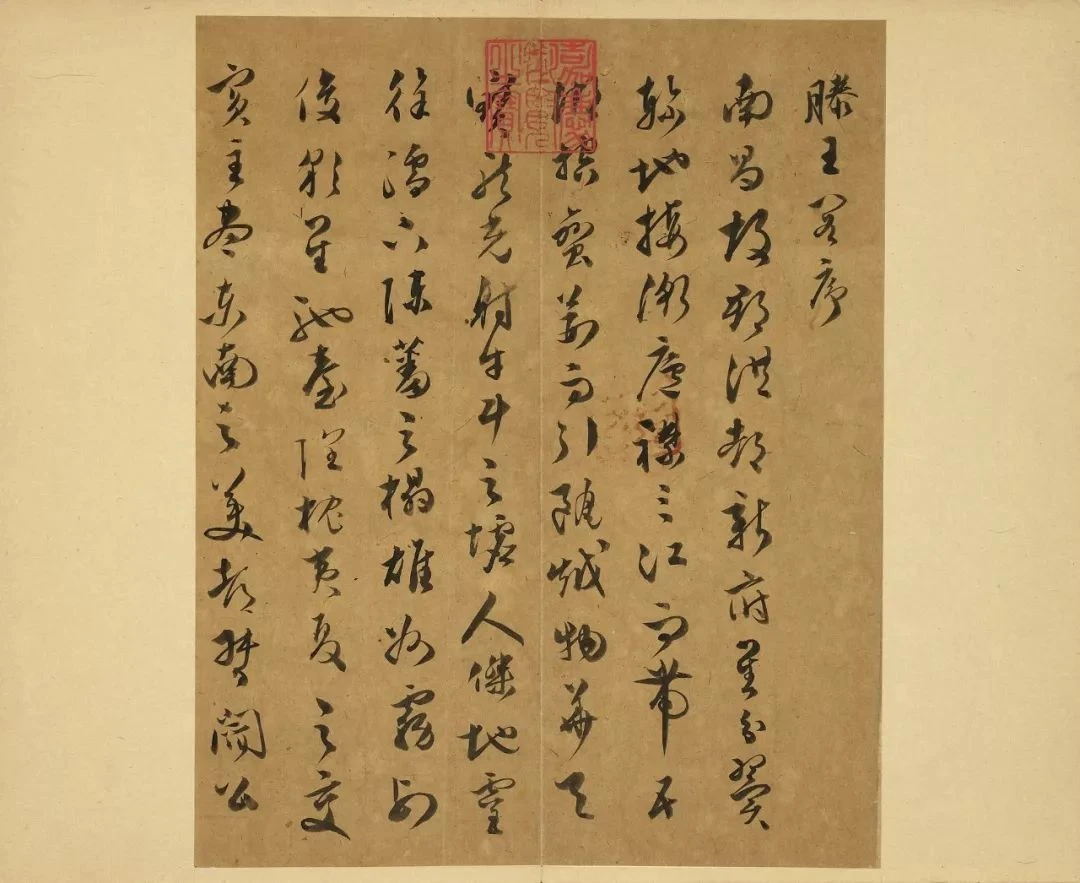 滕王閣序
南昌故郡洪都新府星分翼
軫地接衡廬襟三江而帶五
湖控蠻荊而引甌越物華天
寶龍光射牛斗之墟人傑地靈
徐孺下陳蕃之榻雄州霧列
俊彩星馳臺隍枕夷夏之交
賓主盡東南之美都督閻公
嘉慶御覽之寶